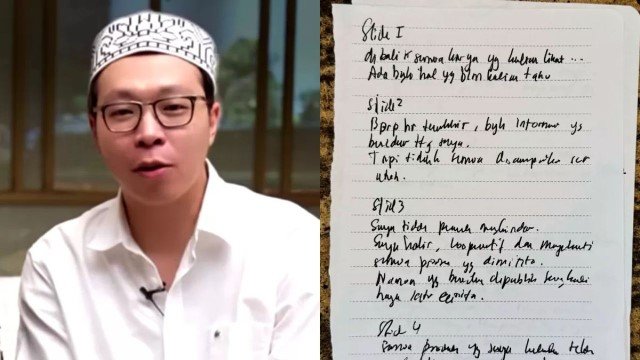 Slide I
dibalik semua karya yg kalian lihat ...
Ada byk hal yg blm kalian tahu
Slide 2
Bprp hr terakhir, byk informasi yg
beredar ttg saya.
Tapi tidak semua disampaikan scr
utuh.
Slide 3
Saya tidak pernah menghindar.
Saya hadir, kooperatif dan mengikuti
semua proses yg diminta.
Namun yg beredar dipublik
hanya satu cerita.
Slide 4
semua yg saya lakukan telah